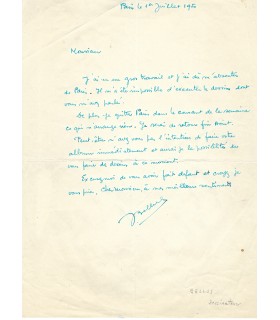 Paris le 1er Juillet 1950
Monsieur
J'ai eu un gros travail et j'ai dû m'absenter
de Paris. Il m'a été impossible d'exécuter les dessins dont
vous m'avez parlé.
De plus je quitte Paris dans le courant de la semaine
ce qui n'arrange rien. Je serai de retour fin Août.
Peut-être n'avez vous pas l'intention de faire votre
album immédiatement et aurai-je la possibilité de
vous faire des dessins, à ce moment.
Excusez-moi de vous avoir fait défaut et croyez, je
vous prie, cher Monsieur, à mes meilleurs sentiments